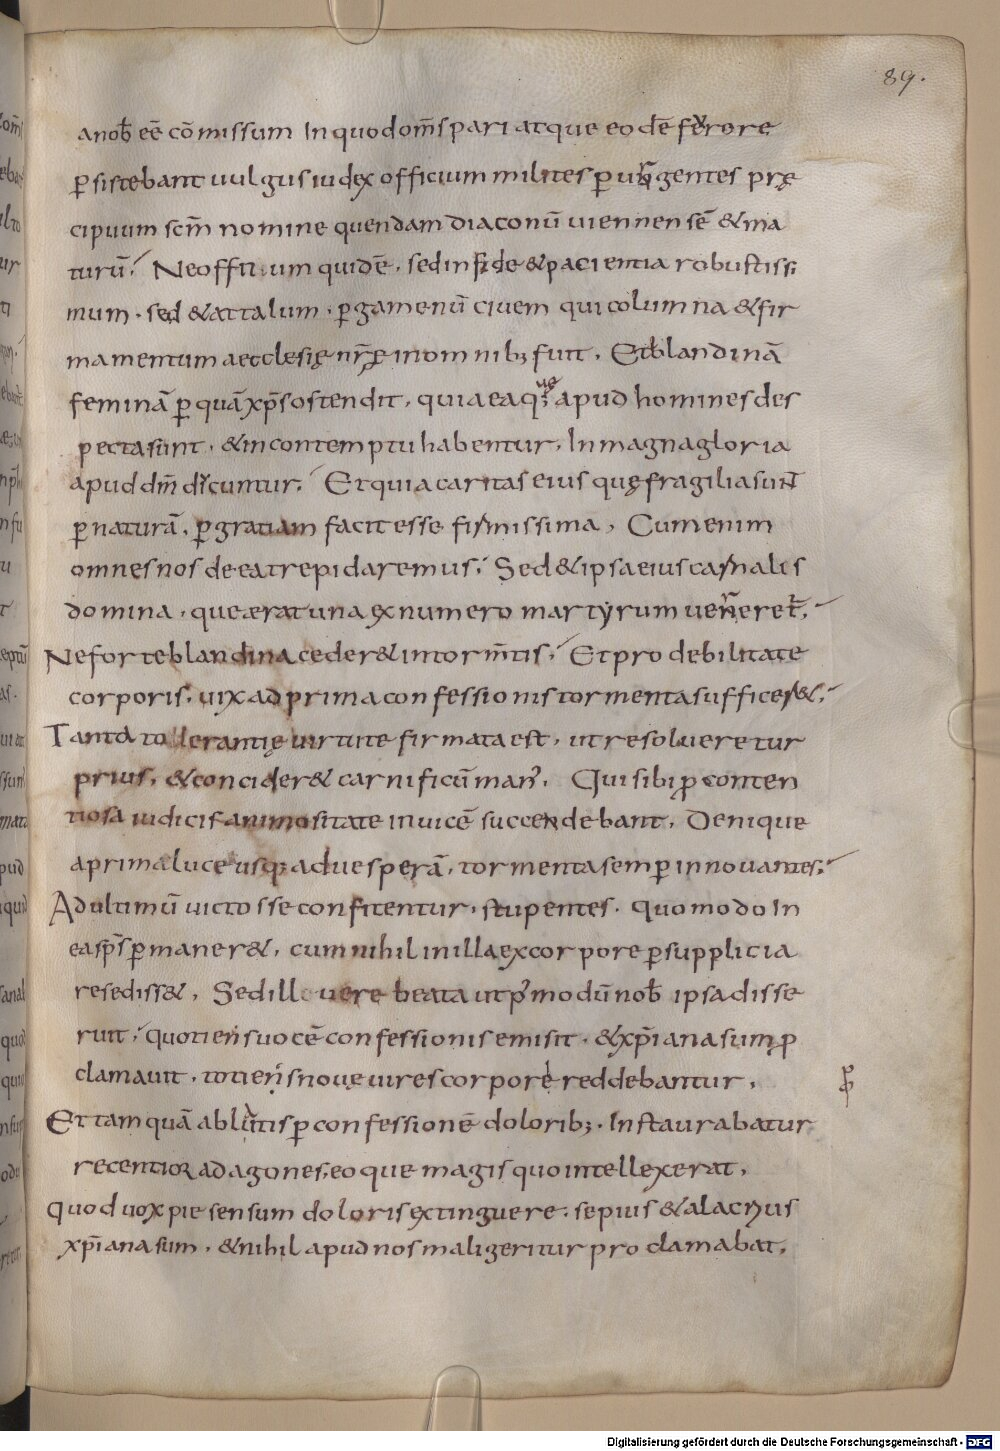 89.
anob̄ eē cō missum In quo dom̄s pari atque eodē feruore
ꝑsistebant uulgus iudex officium milites ꝑurgentes prę
cipuum scm̄ nomine quendam diaconū uiennensē & ma
turū. Neoffitum quidē. sed in fide & pacientia robustissi
mum. sed & attalum. ꝑgamenū ciuem qui columna & fir
mamentum aecclesię nr̄ę in omnib; fuit. Et blandinā
feminā ꝑ quā xp̄s ostendit. quia ea quę apud homines des
pecta sunt. & in contemptu habentur. In magna gloria
apud dm̄ dicuntur. Et quia caritas eius quę fragilia sunt
ꝑ naturā. ꝑ gratiam facit esse firmissima. Cum enim
omnes nos de ea trepidaremus. Sed & ipsa eius carnalis
domina. quae erat una ex numero martyrum uereret̄.
Ne forte blandina ceder& in torm̄tis. Et pro debilitate
corporis. uix ad prima confessionis tormenta sufficer&.
Tanta tollerantię uirtute firmata est. ut resolueretur
prius. & concider& carnificū man'. Qui sibi ꝓ conten
tiosa iudicis animositate inuicē succendebant. Denique
a prima luce usq; ad uesperā. tormenta semꝑ innouantes.
Ad ultimū uictos se confitentur. stupentes. quomodo In
ea sps̄ ꝑmaner&. cum nihil in illa ex corpore ꝑ supplicia
resediss&. Sed ill uere beata ut p'modū nob̄ ipsa disse
ruit. quotiens uocē confessionis emisit. & xp̄iana sum ꝓ
clamauit. totiens nouę uires corpore reddebantur.
Et tamquā ablutis ꝑ confessionē dolorib;. Instaurabatur
recentior ad agones. eoque magis quo intellexerat.
quod uox pie sensum doloris extinguere. sepius & alacrius
xp̄iana sum. & nihil apud nos mali geritur proclamabat.
Digitalisierung gefördert durch die Deutsche Forschungsgemeinschaft - DFG